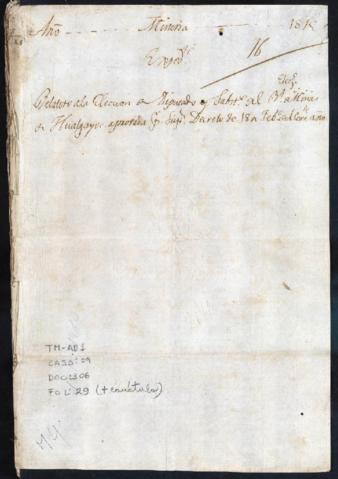 Año Mineria 181
Exped.te
16
Relativo ala Eleccion de Diputados y Subst.s al R.l de Mina
de Hualgayoc aprovada p.r Sup.r Decreto de 18 de Feb.o del Corr.te año
TM-AD1
CAJA: 09
DOC: 306
FOL: 29 (+ carátula)